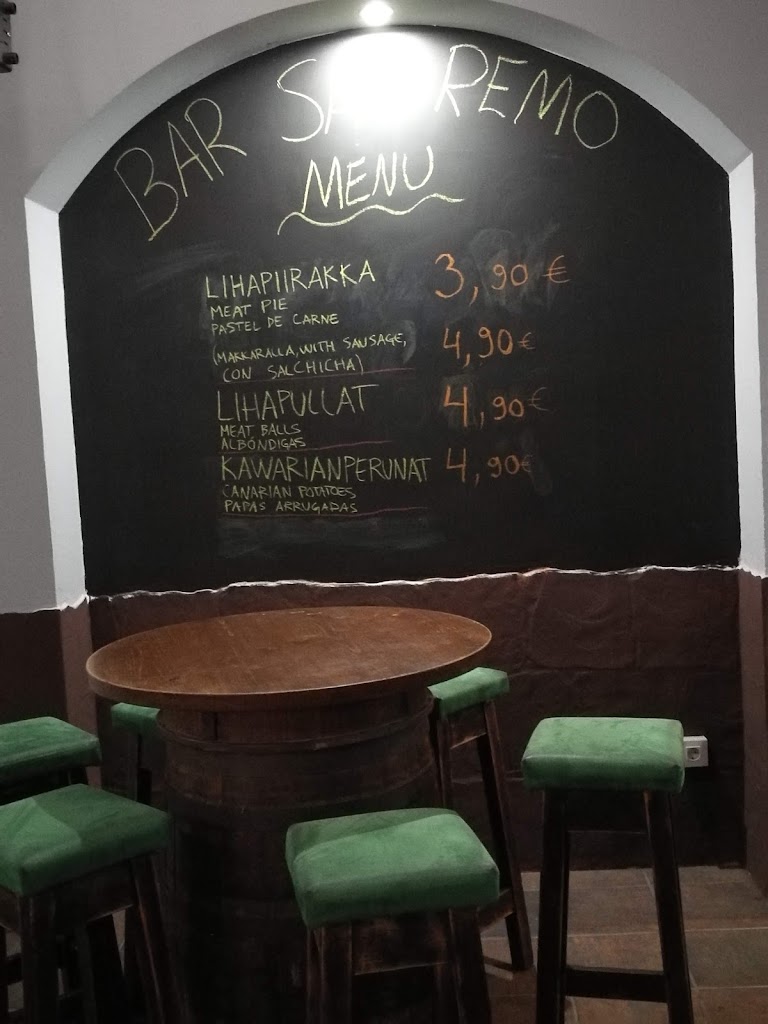 BAR SAN REMO
MENU
LIHAPIIRAKKA 3,90 €
MEAT PIE
PASTEL DE CARNE
(MAKKARALLA, WITH SAUSAGE, 4,90 €
CON SALCHICHA)
LIHAPULLAT 4,90 €
MEAT BALLS
ALBÓNDIGAS
KAWARIANPERUNAT 4,90€
CANARIAN POTATOES
PAPAS ARRUGADAS